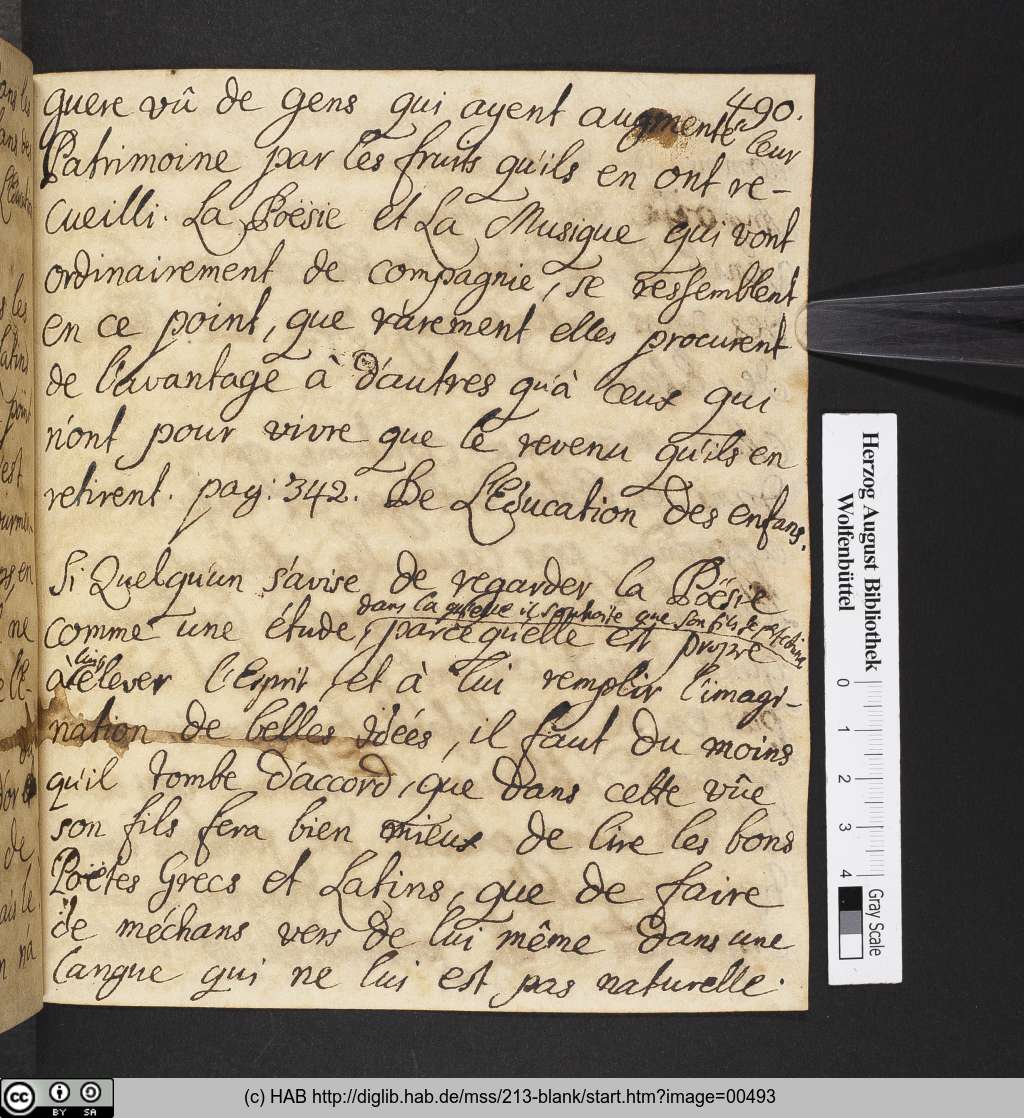 490.
guere vû de gens qui ayent augmenté leur
Patrimoine par les fruits qu'ils en ont re-
cueilli. La Poësie et La Musique qui vont
ordinairement de compagnie, se ressemblent
en ce point, que rarement elles procurent
de l'avantage à d'autres qu'à ceux qui
n'ont pour vivre que le revenu qu'ils en
retirent. pag: 342. De L'Education des enfans.
Si Quelqu'un s'avise de regarder la Poësie
dans la quelle il souhaite que son fils se perfectione
comme une étude, parcequ'elle est propre
luis
à elever l'Esprit, et à lui remplir l'imagi-
nation de belles idées, il faut du moins
qu'il tombe d'accord, que dans cette vûe
son fils fera bien mieux de lire les bons
Poëtes Grecs et Latins, que de faire
de méchans vers de lui même dans une
Langue qui ne lui est pas naturelle.
Herzog August Bibliothek
Wolfenbüttel
0 1 2 3 4
Gray Scale
cc BY SA
(c) HAB http://diglib.hab.de/mss/213-blank/start.htm?image=00493